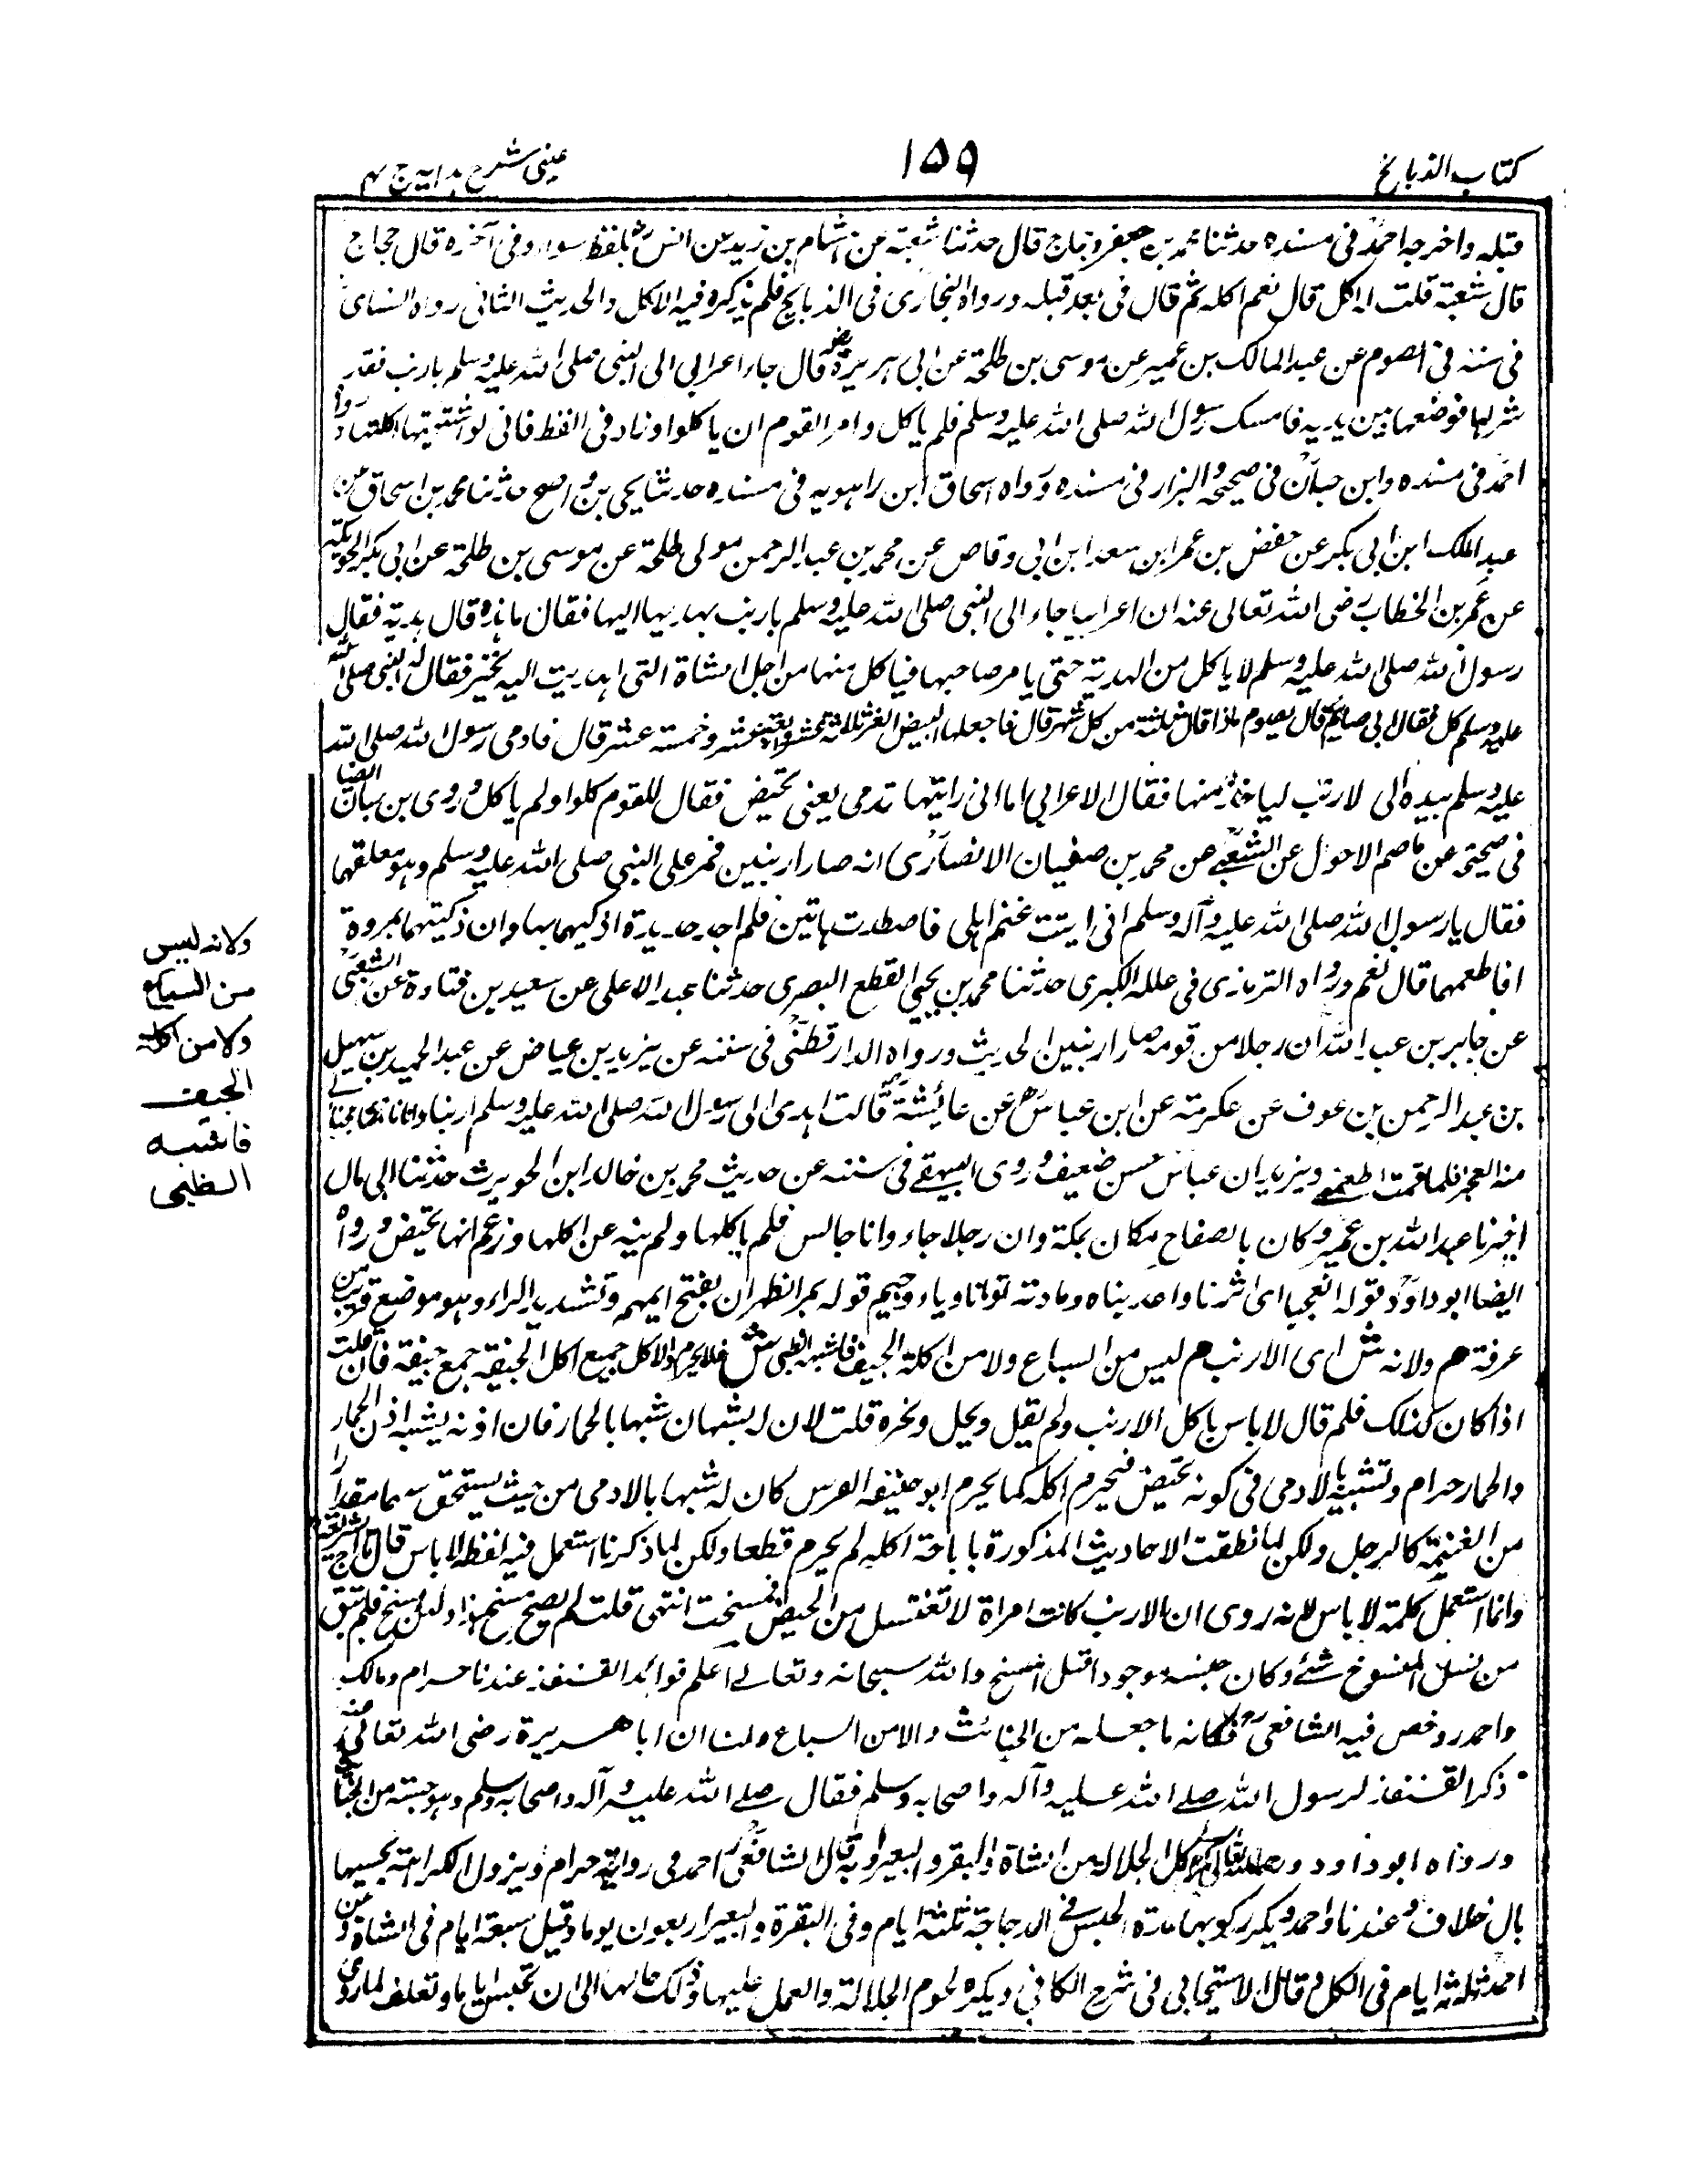 كتاب الذبائح
١٥٩
عينى شرح هداية ج ٤
قبله واخرجه احمد فى مسنده حدثنا محمد بن جعفر وحجاج قال حدثنا شعبة عن هشام بن زيد عن انس بلفظ سواء وفى آخره قال حجاج
قال شعبة قلت له اكل قال نعم اكله ثم قال فى بعد قبله ورواه البخارى فى الذبائح فلم يذكر فيه الاكل والحديث الثانى رواه النسائى
فى سننه فى الصوم عن عبد المالك بن عمير عن موسى بن طلحة عن ابى هريرة قال جاء اعرابى الى النبى صلى الله عليه وسلم بارنب فقد
شواها فوضعها بين يديه فامسك رسول الله صلى الله عليه وسلم فلم ياكل وامر القوم ان ياكلوا وزاد فى الفظ فانى لو اشتهيتها اكلتها ورواه
احمد فى مسنده وابن حبان فى صحيحه والبزار فى مسنده ورواه اسحاق ابن راهويه فى مسنده حدثنا يحيى بن واضح حدثنا محمد بن اسحاق عن
عبد الملك ابن ابى بكر عن حفص بن عمر ابن سعد ابن ابى وقاص عن محمد بن عبد الرحمن مولى طلحة عن موسى بن طلحة عن ابى
عن عمر بن الخطاب رضى الله تعالى عنه ان اعرابيا جاء الى النبى صلى الله عليه وسلم بارنب يهديها اليها فقال ما هذه قال هدية فقال
رسول الله صلى الله عليه وسلم لا ياكل من الهدية حتى يامر صاحبها فياكل منها من اجل الشاة التى اهديت اليه بخيبر فقال له النبى صلى الله
عليه وسلم كل فقال انى صائم قال بصوم ماذا قال ثلثة من كل شهر قال فاجعلها البيض الغر ثلاثة عشر واربعة عشر وخمسة عشر قال فاومى رسول الله صلى الله
عليه وسلم بيده الى الارنب لياخذ منها فقال الاعرابى اما انى رايتها تدمى يعنى تحيض فقال للقوم كلوا ولم ياكل وروى بن حبان ايضا
فى صحيحه عن عاصم الاحول عن الشعبى عن محمد بن صفيان الانصارى انه صار ارنبين فمر على النبى صلى الله عليه وسلم وهو معلقهما
فقال يا رسول الله صلى الله عليه وآله وسلم انى اتيت غنم اهلى فاصطدت هاتين فلم اجد حديدة اذكيهما بها وان ذكيتهما بمروة
افاطعمهما قال نعم ورواه الترمذى فى علله الكبرى حدثنا محمد بن يحيى القطع البصرى حدثنا عبد الاعلى عن سعيد بن قتادة عن الشعبى
عن جابر بن عبد الله ان رجلا من قومه صار ارنبين الحديث ورواه الدارقطنى فى سننه عن يزيد بن عياض عن عبد الحميد بن سهيل
بن عبد الرحمن بن عوف عن عكرمة عن ابن عباس عن عائشة قالت اهدى الى رسول الله صلى الله عليه وسلم ارنبا وانا نائمة فخبا لى
منه العجز فلما قمت اطعمنى ويزيد ان عباض حسن ضعيف وروى البيهقى فى سننه عن حديث محمد بن خالد ابن الحويرث حدثنا ابى مال
اخبرنا عبد الله بن عمير وكان بالصفاح مكان بمكة وان رجلا جاء وانا جالس فلم ياكلها ولم ينه عن اكلها وزعم انها تحيض ورواه
ايضا ابو داود قوله انفجنا اى اثرنا واعديناه ومادته نون وفاء وجيم قوله بمر الظهران بفتح الميم وتشديد الراء وهو موضع قريب من
عرفة م ولانه ش اى الارنب م ليس من السباع ولا من اكلة الجيف فاشبه الظبى ش فلا يحرم والاكل جميع اكل الجيفة جمع جيفة فان قلت
اذا كان كذلك فلم قال لا باس باكل الارنب ولم يقل ويحل ونحره قلت لان له شبهان شبها بالحمار فان اذنه يشبه اذن الحمار
والحمار حرام وتشبيها بالادمى فى كونه تحيض فيحرم اكله كما يحرم ابو حنيفة الفرس كان له شبها بالادمى من حيث يستحق سهما مقدارا
من الغنيمة كالرجل ولكن لما نطقت الاحاديث المذكورة باباحة اكله لم يحرم قطعا ولكن لما ذكرنا استعمل فيه لفظه لاباس قال تاج الشريعة
وانما استعمل كلمة لا باس لانه روى ان الارنب كانت امراة لا تغتسل من الحيض فمسخت انتهى قلت لم يصح مسخ هذا ولئن مسخ فلم يبق
من نسل المنسوخ شئ وكان جنسه موجودا قبل المسخ والله سبحانه وتعالى اعلم فوائد القنفذ عندنا حرام ومالك
واحمد رخص فيه الشافعى فكانه ما جعله من الخبائث والامن السباع ولنا ان ابا هريرة رضى الله تعالى عنه
ذكر القنفذ لرسول الله صلى الله عليه وآله واصحابه وسلم فقال صلى الله عليه وآله واصحابه وسلم وهو خبيثة من الخبائث
ورواه ابو داود رحمه الله تعالى اكل الجلالة من الشاة والبقر والبعير وبه قال الشافعى احمد فى رواية حرام ويزول الكراهة بحبسها
بال خلاف وعندنا واحمد ويكره ركوبها مدة الحبس فى الدجاجة ثلثة ايام وفى البقرة والبعير اربعون يوما وقيل سبعة ايام فى الشاة وعن
احمد ثلثة ايام فى الكل وقال الاسبيجابى فى شرح الكافى ويكره لحوم الجلالة والعمل عليها وذلك حالها الى ان تحبس اياما وتعلف لما روى
ولانه ليس
من السباع
ولا من اكلة
الجيف
فاشبه
الظبى